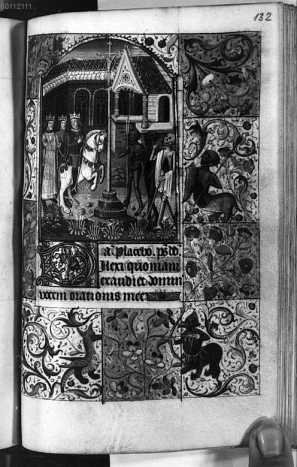 132
placebo. ps. d.
ilexi quoniam
exaudiet domin
vocem orationis mee